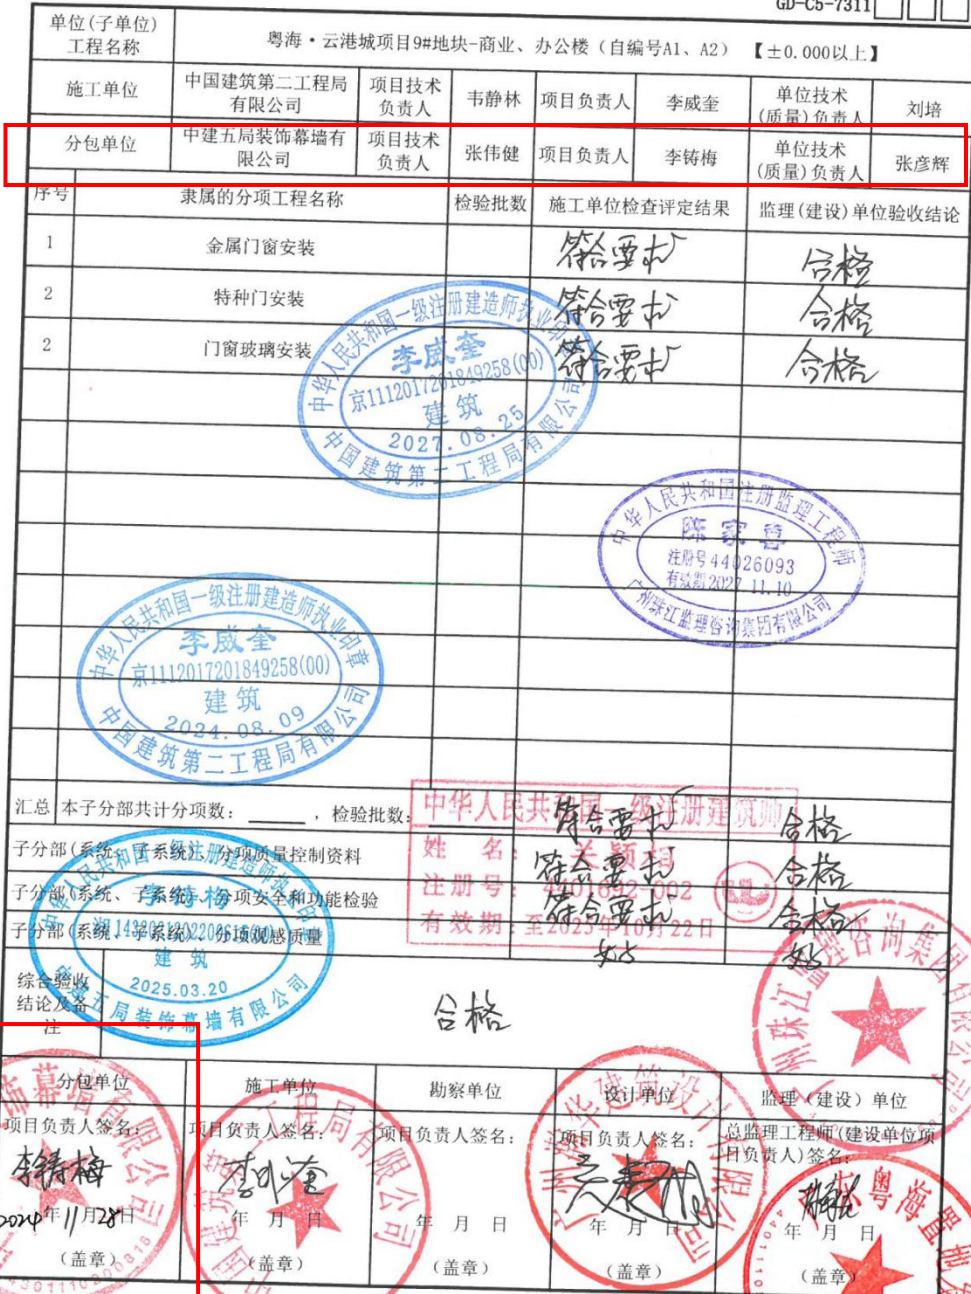 GD-C5-7311
单位(子单位)工程名称 粤海·云港城项目9#地块-商业、办公楼（自编号A1、A2）【±0.000以上】
施工单位 中国建筑第二工程局有限公司 项目技术负责人 韦静林 项目负责人 李威奎 单位技术(质量)负责人 刘培
分包单位 中建五局装饰幕墙有限公司 项目技术负责人 张伟健 项目负责人 李铸梅 单位技术(质量)负责人 张彦辉
序号 隶属的分项工程名称 检验批数 施工单位检查评定结果 监理(建设)单位验收结论
1 金属门窗安装 符合要求 合格
2 特种门安装 符合要求 合格
2 门窗玻璃安装 符合要求 合格
中华人民共和国一级注册建造师执业印章
李威奎
京1112017201849258(00)
建筑
2027.08.25
中国建筑第二工程局有限公司
中华人民共和国注册监理工程师
注册号44026093
有效期2027.11.10
广州珠江监理咨询集团有限公司
中华人民共和国一级注册建造师执业印章
李威奎
京1112017201849258(00)
建筑
2024.08.09
中国建筑第二工程局有限公司
汇总 本子分部共计分项数： ，检验批数： 符合要求 合格
子分部(系统、子系统)、分项质量控制资料 符合要求 合格
子分部(系统、子系统)、分项安全和功能检验 符合要求 合格
子分部(系统、子系统)、分项观感质量 好 好
中华人民共和国一级注册建筑师
姓 名：
注册号：
有效期：至2025年10月22日
中华人民共和国一级注册建造师执业印章
李铸梅
建筑
2025.03.20
中建五局装饰幕墙有限公司
综合验收结论及备注 合格
分包单位 施工单位 勘察单位 设计单位 监理（建设）单位
项目负责人签名： 项目负责人签名： 项目负责人签名： 项目负责人签名： 总监理工程师(建设单位项目负责人)签名：
李铸梅 李威奎
2024年11月28日 年 月 日 年 月 日 年 月 日 年 月 日
（盖章） （盖章） （盖章） （盖章） （盖章）